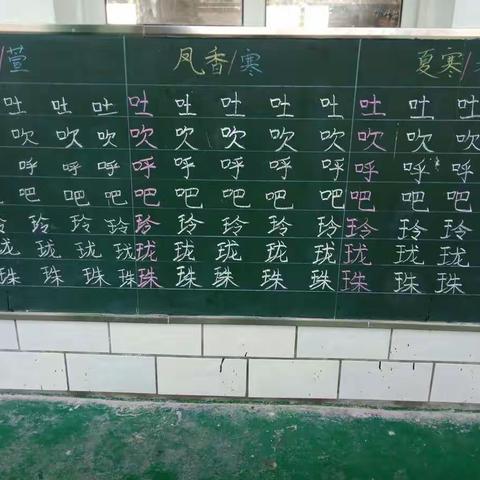 /萱 凤香/寒 夏寒/
吐 吐 吐 吐 吐 吐 吐 吐 吐 吐 吐
吹 吹 吹 吹 吹 吹 吹 吹 吹 吹 吹
呼 呼 呼 呼 呼 呼 呼 呼 呼 呼 呼
吧 吧 吧 吧 吧 吧 吧 吧 吧 吧 吧
玲 玲 玲 玲 玲 玲 玲 玲 玲 玲 玲
珑 珑 珑 珑 珑 珑 珑 珑 珑 珑 珑
珠 珠 珠 珠 珠 珠 珠 珠 珠 珠 珠